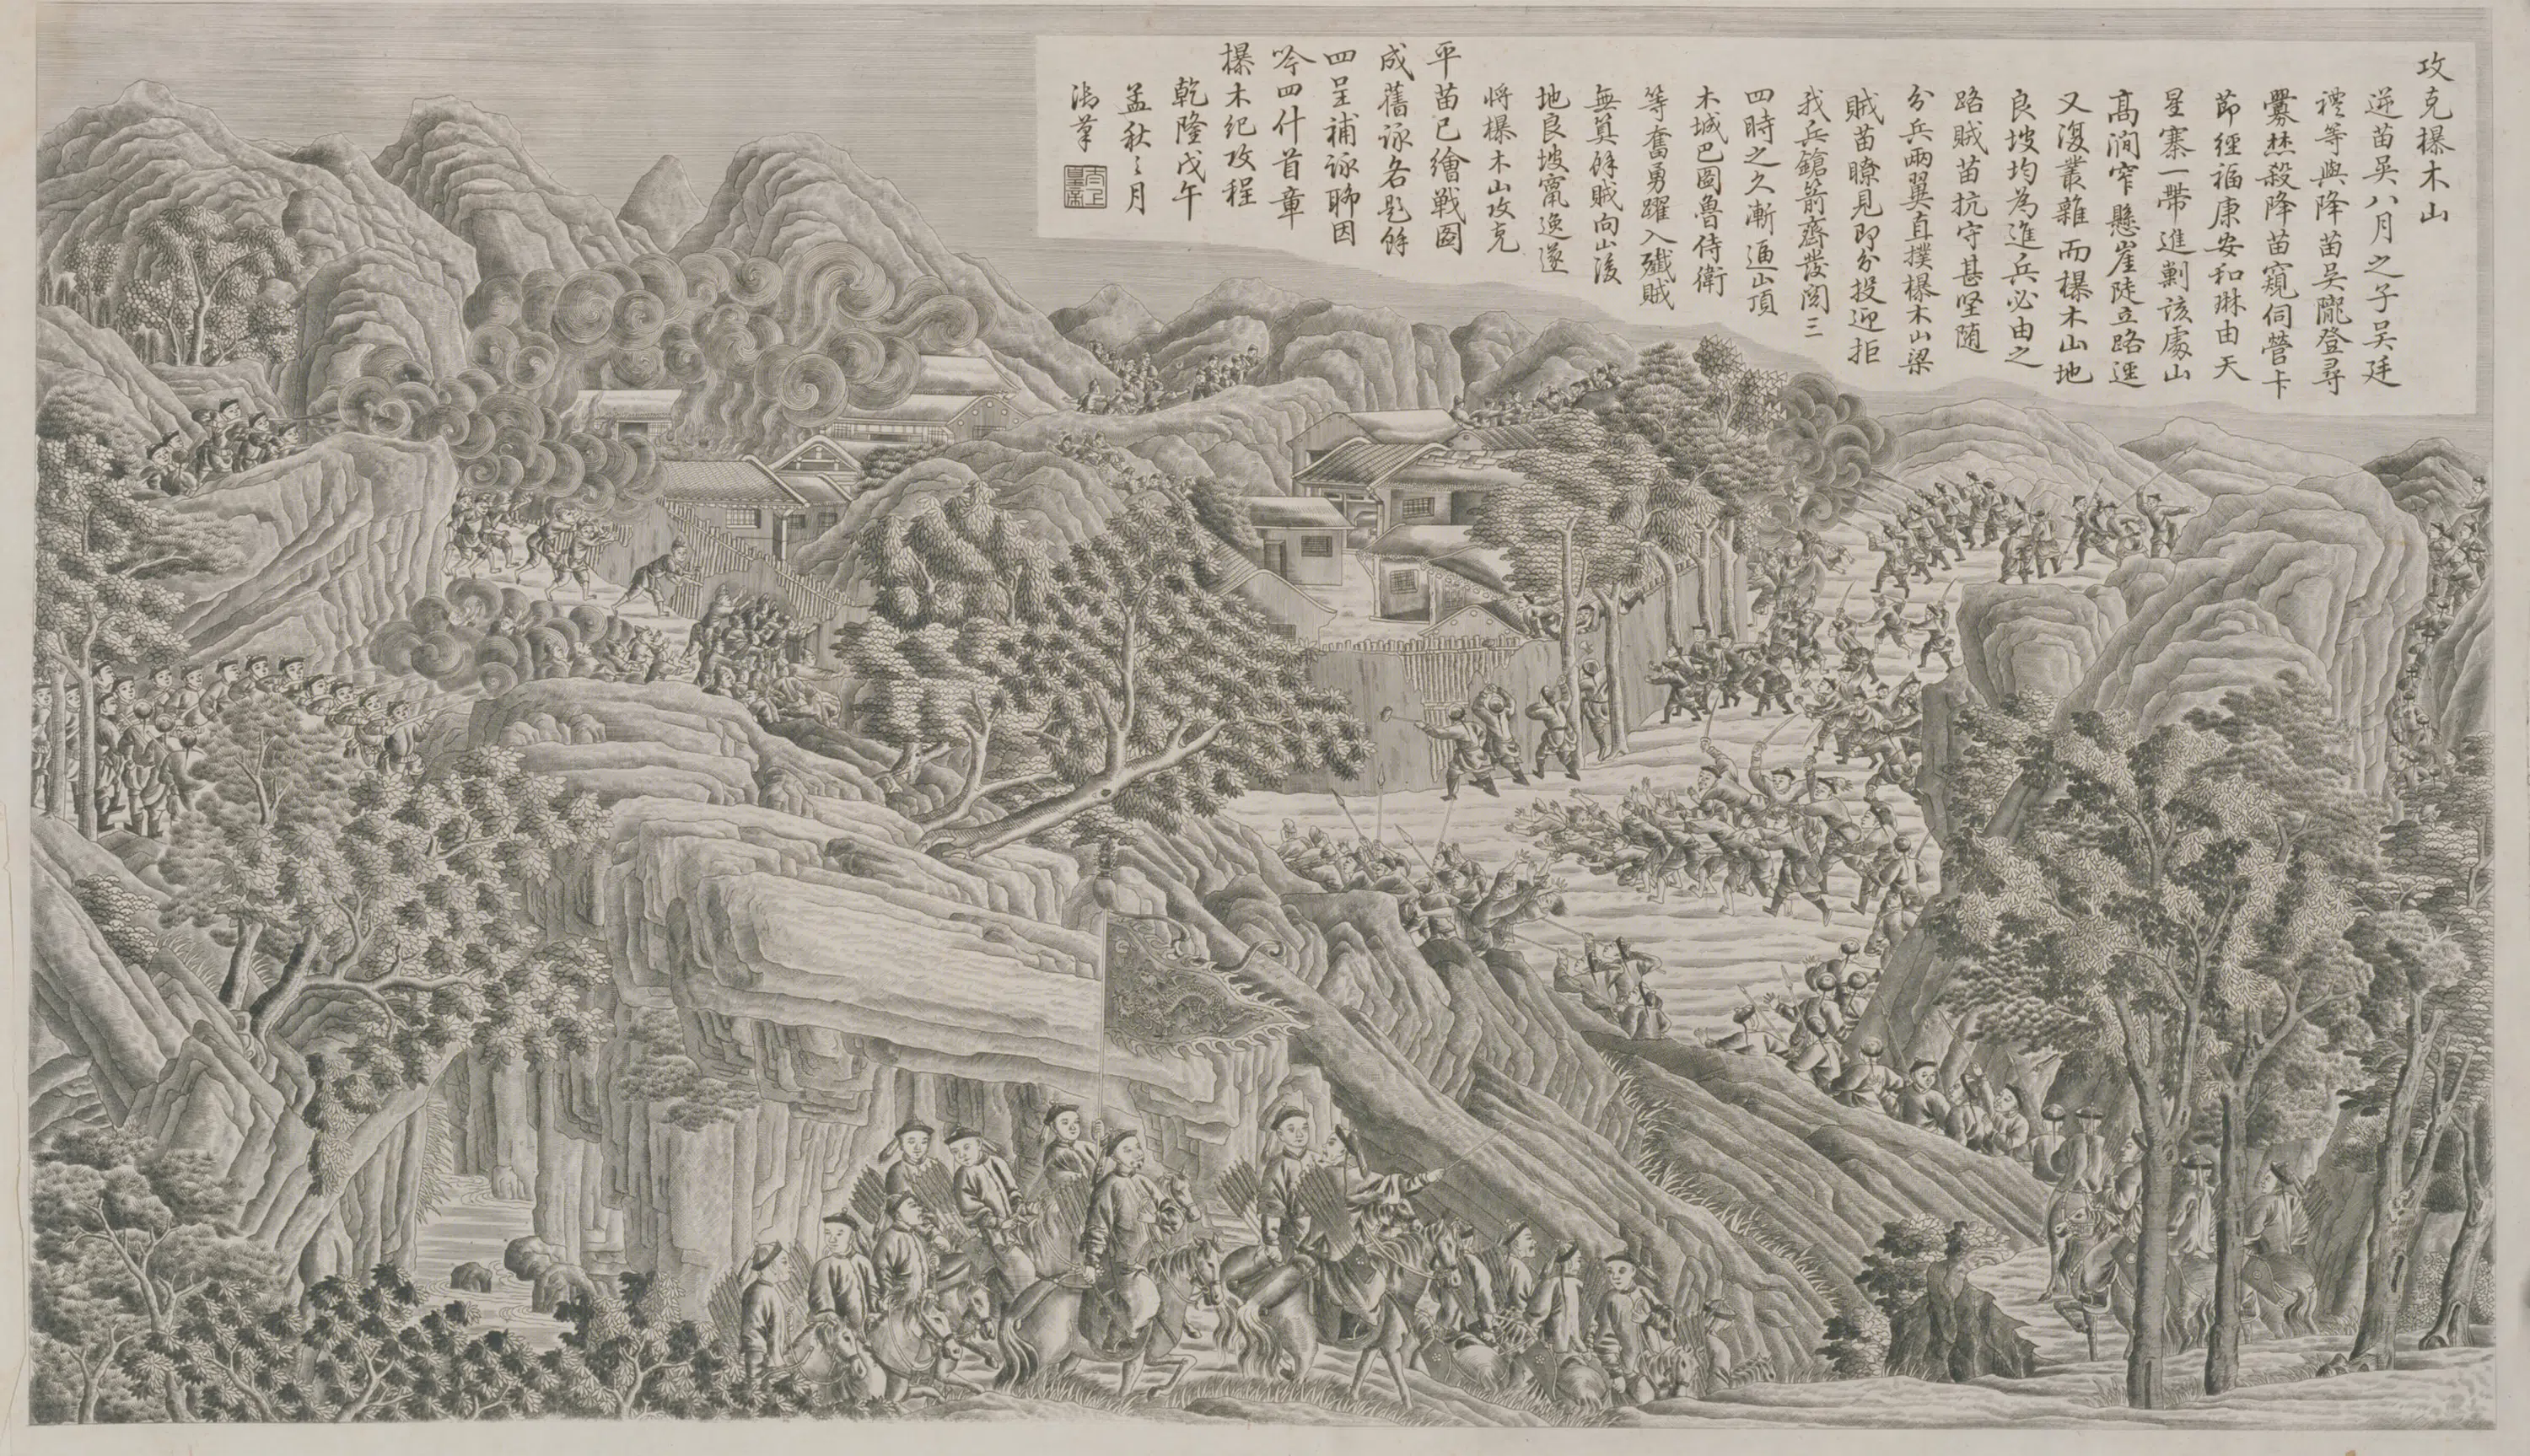 攻克㯶木山
逆苗吳八月之子吳廷
禮等與降苗吳隴登尋
釁焚殺降苗窺伺營卡
節經福康安和琳由天
星寨一帶進剿該處山
高澗窄懸崖陡立路逕
又復叢雜而㯶木山地
良坡均為進兵必由之
路賊苗抗守甚堅随
分兵兩翼直撲㯶木山梁
賊苗瞭見即分投迎拒
我兵鎗箭齊發閱三
四時之久漸逼山頂
木城巴圖魯侍衛
等奮勇躍入殲賊
無筭餘賊向山後
地良坡竄逸遂
將㯶木山攻克
平苗已繪戰圖
成舊詠各題餘
四呈補詠聊因
吟四什首章
㯶木紀攻程
乾隆戊午
孟秋之月
御筆
太上皇帝